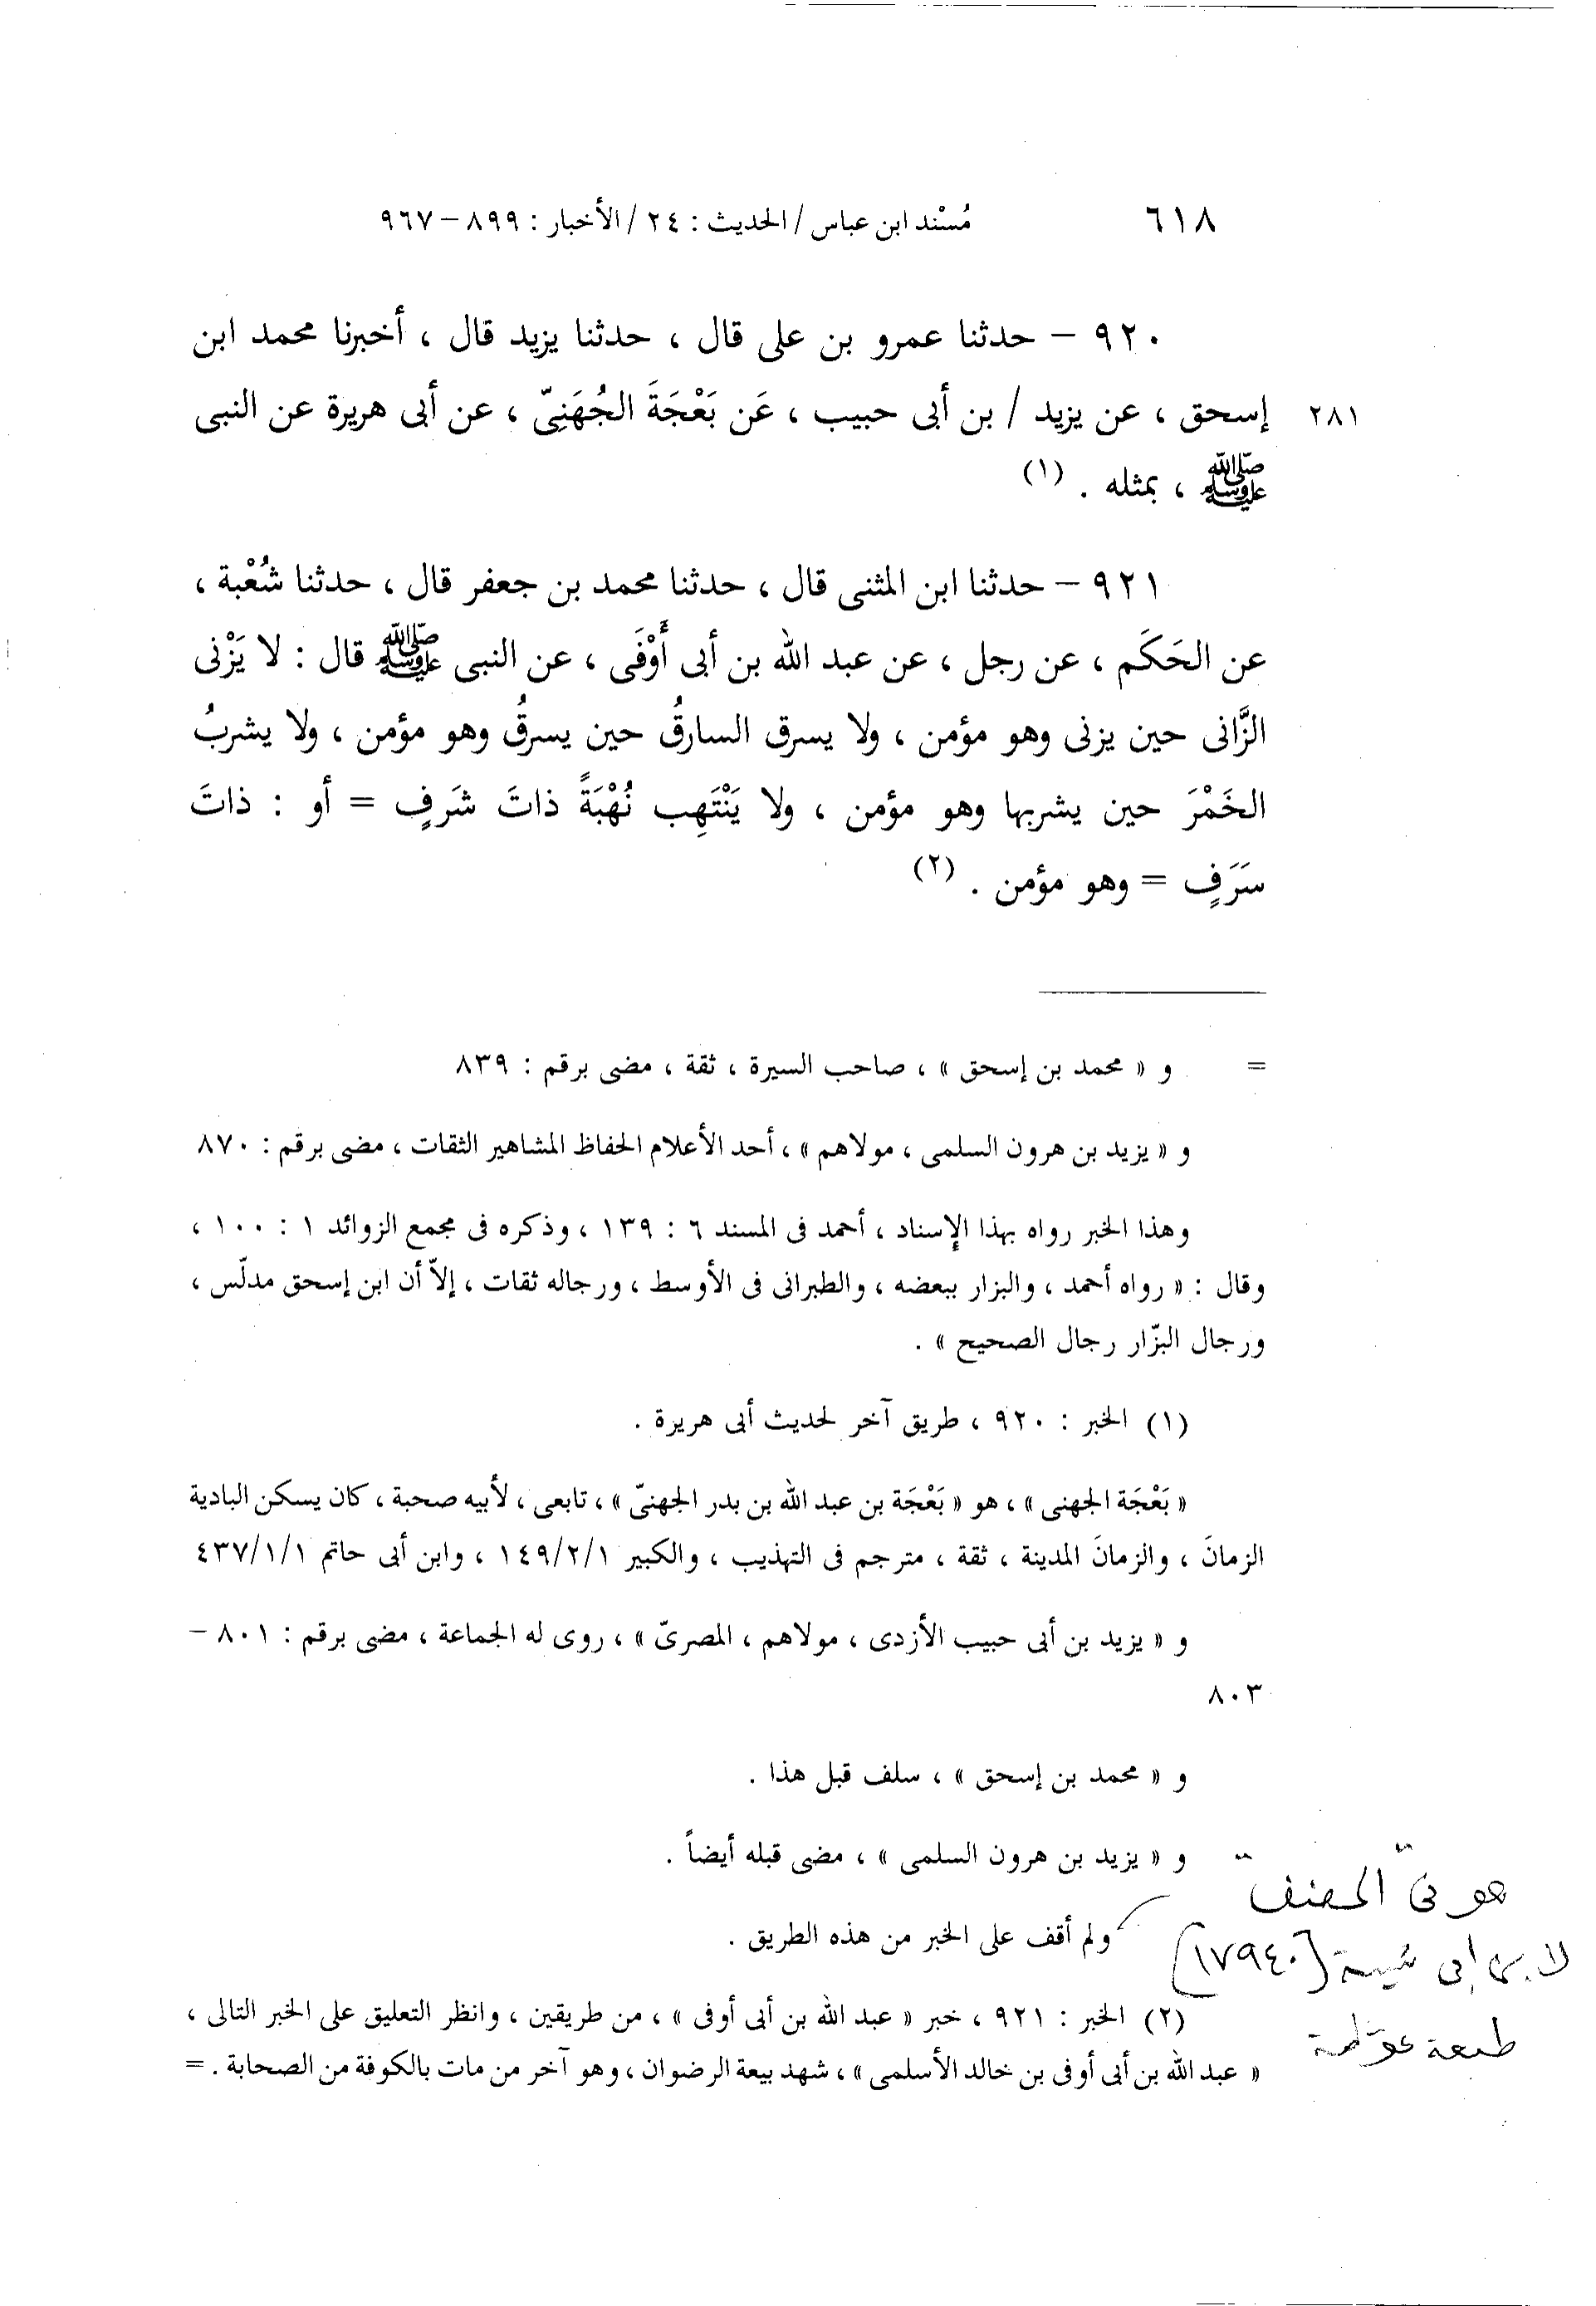 ٦١٨ مُسْند ابن عباس / الحديث : ٢٤ / الأخبار : ٨٩٩ – ٩٦٧
٩٢٠ – حدثنا عمرو بن على قال ، حدثنا يزيد قال ، أخبرنا محمد ابن
٢٨١ إسحق ، عن يزيد / بن أبى حبيب ، عَن بَعْجَةَ الجُهَنِىّ ، عن أبى هريرة عن النبى
ﷺ ، بمثله . (١)
٩٢١ – حدثنا ابن المثنى قال ، حدثنا محمد بن جعفر قال ، حدثنا شُعْبة ،
عن الحَكَم ، عن رجل ، عن عبد الله بن أبى أَوْفَى ، عن النبى ﷺ قال : لا يَزْنى
الزَّانى حين يزنى وهو مؤمن ، ولا يسرق السارقُ حين يسرقُ وهو مؤمن ، ولا يشربُ
الخَمْرَ حين يشربها وهو مؤمن ، ولا يَنْتَهِب نُهْبَةً ذاتَ شَرَفٍ = أو : ذاتَ
سَرَفٍ = وهو مؤمن . (٢)
= و « محمد بن إسحق » ، صاحب السيرة ، ثقة ، مضى برقم : ٨٣٩
و « يزيد بن هرون السلمى ، مولاهم » ، أحد الأعلام الحفاظ المشاهير الثقات ، مضى برقم : ٨٧٠
وهذا الخبر رواه بهذا الإسناد ، أحمد فى المسند ٦ : ١٣٩ ، وذكره فى مجمع الزوائد ١ : ١٠٠ ،
وقال : « رواه أحمد ، والبزار ببعضه ، والطبرانى فى الأوسط ، ورجاله ثقات ، إلاّ أن ابن إسحق مدلّس ،
ورجال البزّار رجال الصحيح » .
(١) الخبر : ٩٢٠ ، طريق آخر لحديث أبى هريرة .
« بَعْجَة الجهنى » ، هو « بَعْجَة بن عبد الله بن بدر الجهنىّ » ، تابعى ، لأبيه صحبة ، كان يسكن البادية
الزمانَ ، والزمانَ المدينة ، ثقة ، مترجم فى التهذيب ، والكبير ١/٢/١٤٩ ، وابن أبى حاتم ١/١/٤٣٧
و « يزيد بن أبى حبيب الأزدى ، مولاهم ، المصرىّ » ، روى له الجماعة ، مضى برقم : ٨٠١ –
٨٠٣
و « محمد بن إسحق » ، سلف قبل هذا .
و « يزيد بن هرون السلمى » ، مضى قبله أيضاً .
هو فى المصنف
ولم أقف على الخبر من هذه الطريق .
لابن أبى شيبة (١٧٩٤٠)
(٢) الخبر : ٩٢١ ، خبر « عبد الله بن أبى أوفى » ، من طريقين ، وانظر التعليق على الخبر التالى ،
طبعة عوّامة
« عبد الله بن أبى أوفى بن خالد الأسلمى » ، شهد بيعة الرضوان ، وهو آخر من مات بالكوفة من الصحابة . =